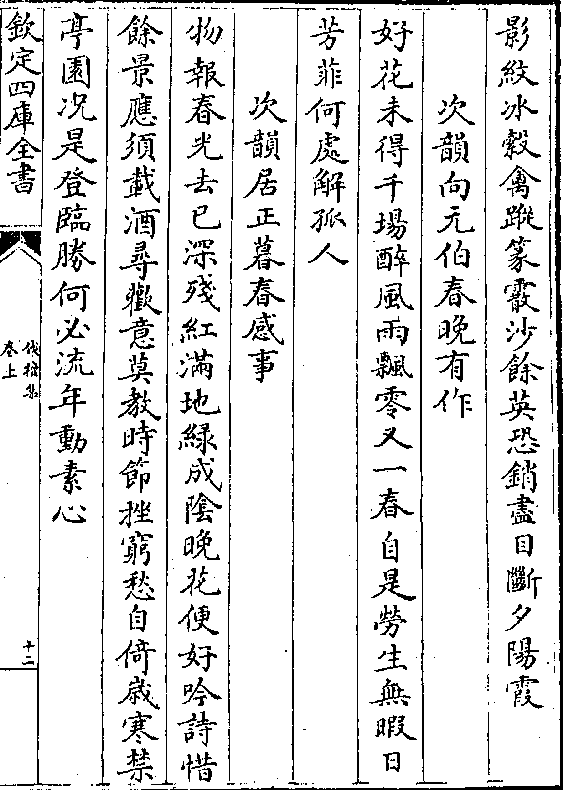 影紋冰縠禽蹤篆霰沙餘英恐銷盡目斷夕陽霞
次韻向元伯春晚有作
好花未得千場醉風雨飄零又一春自是勞生無暇日
芳菲何處解孤人
次韻居正暮春感事
物報春光去已深殘紅滿地緑成陰晚花便好吟詩惜
餘景應須載酒尋歡意莫教時節挫窮愁自倚歲寒禁
亭園况是登臨勝何必流年動素心
欽定四庫全書
伐檀集
卷上
十二